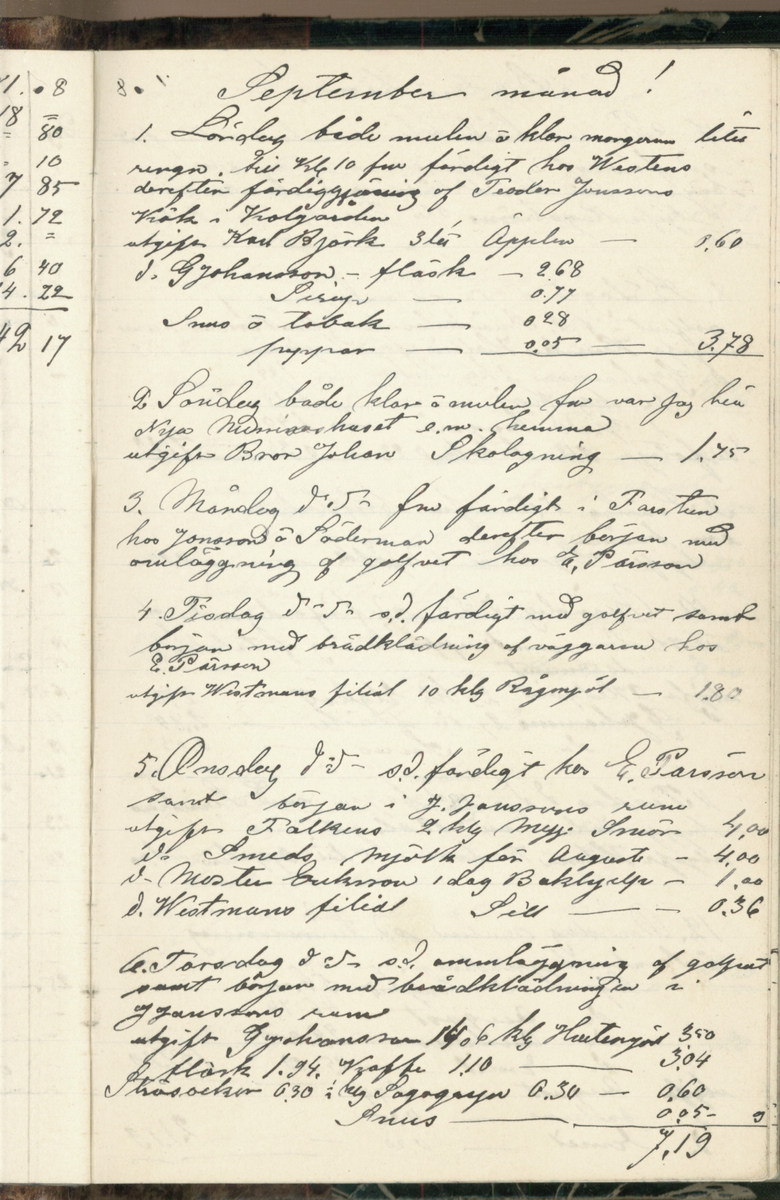 71. 08
18 =
= 80
- 10
7 85
1. 72
2. =
6 40
4. 22
42 17
8.
September månad!
1. Lördag både mulen å klar morgonen lite
rengn. till Kl 10 fm färdigt hos Westens
derefter färdiggjöring af Teodor Jonssons
Kök i Kolgården
utgift Karl Björk 3 lit Äpplen — 0,60
d. G Johansson - fläsk — 2.68
Sirap — 0.77
Snus å tobak — 0.28
peppar — 0.05 — 3.78
2 Söndag både klar å mulen fm var jag
Nya Missionshuset e.m. hemma
utgift Bror Johan Skolagning — 1.75
3. Måndag d-o- fm färdigt i Farstun
hos Jonsson å Söderman derefter början med
omläggning af golfvet hos E. Pärsson
4. Tisdag d-o- s.d. färdigt med golfvet samt
början med brädklädning af väggarne hos
E. Pärsson
utgift Westmans filial 10 klg Rågmjöl — 1.80
5. Onsdag d-o- s.d. färdigt hos E. Pärsson
samt början i J. Janssons rum
utgift Falkens 2 klg Mejr Smör 4,00
d- Smeds mjölk för Auguste - 4.00
d- Moster Eriksson 1 dag Bakhjelp - 1.00
d. Westmans filial Sill — 0.36
6. Torsdag d-o- s.d. ommläggning af golfvet
samt början med brädklädningen i
J Janssons rum
utgift G Johansson 6 klg Hvetemjöl 3.50
fläsk 1.94. Kaffe 1.10 — 3.04
Strösocker 0.30 klg Sagogryn 0.30 — 0.60
Snus — 0.05-
7,19